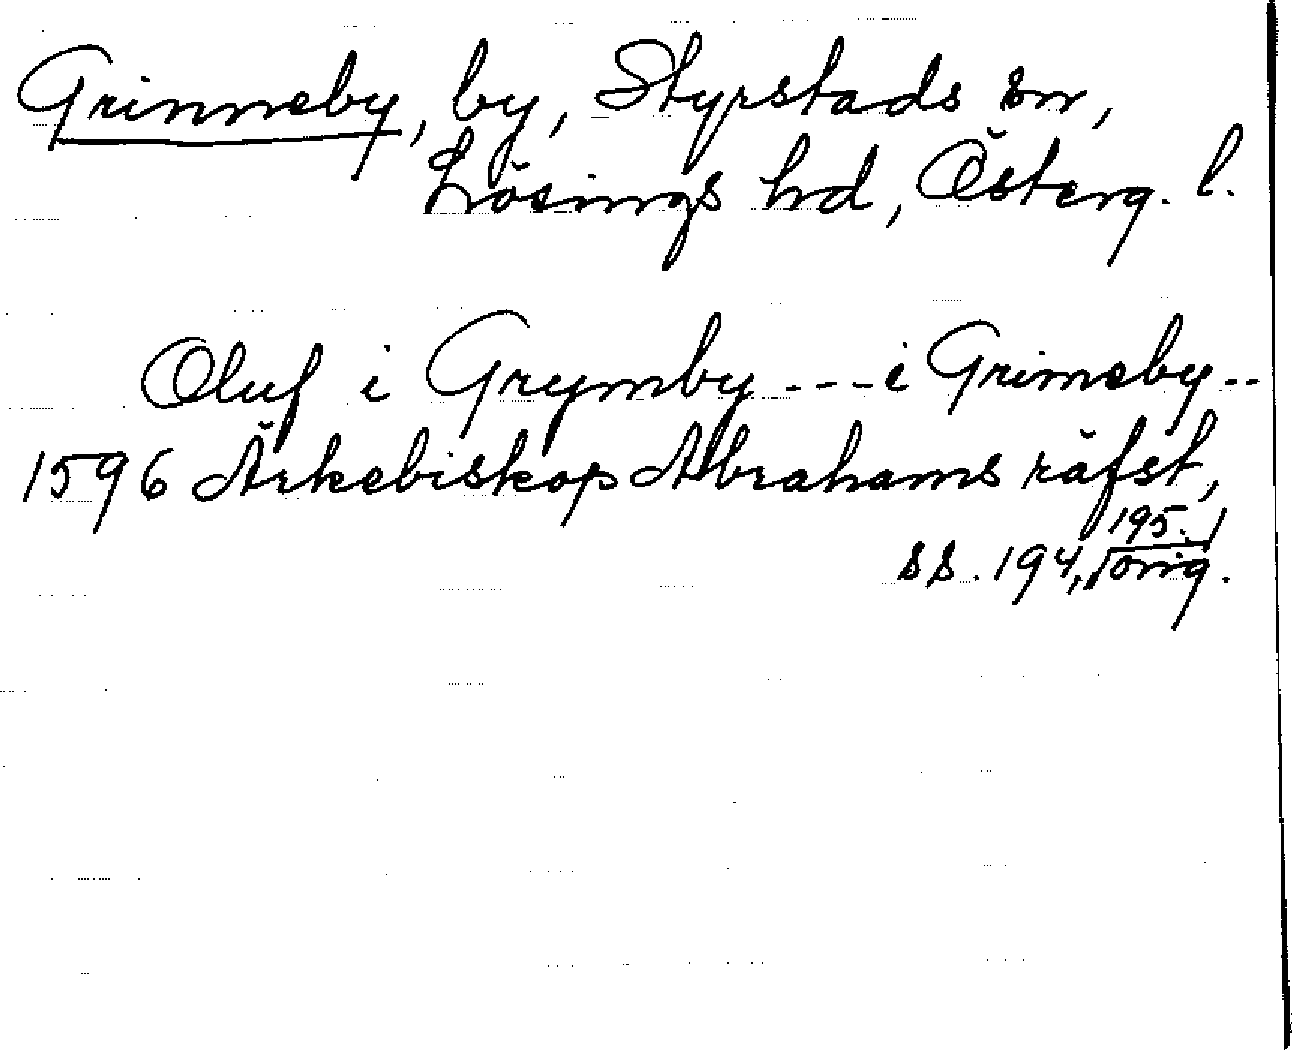 Grinneby, by, Styrstads sn,
Lösings hd, Österg. l.
Oluf i Grymby --- i Grimeby --
1596 Ärkebiskop Abrahams räfst,
ss. 194, 195. orig.